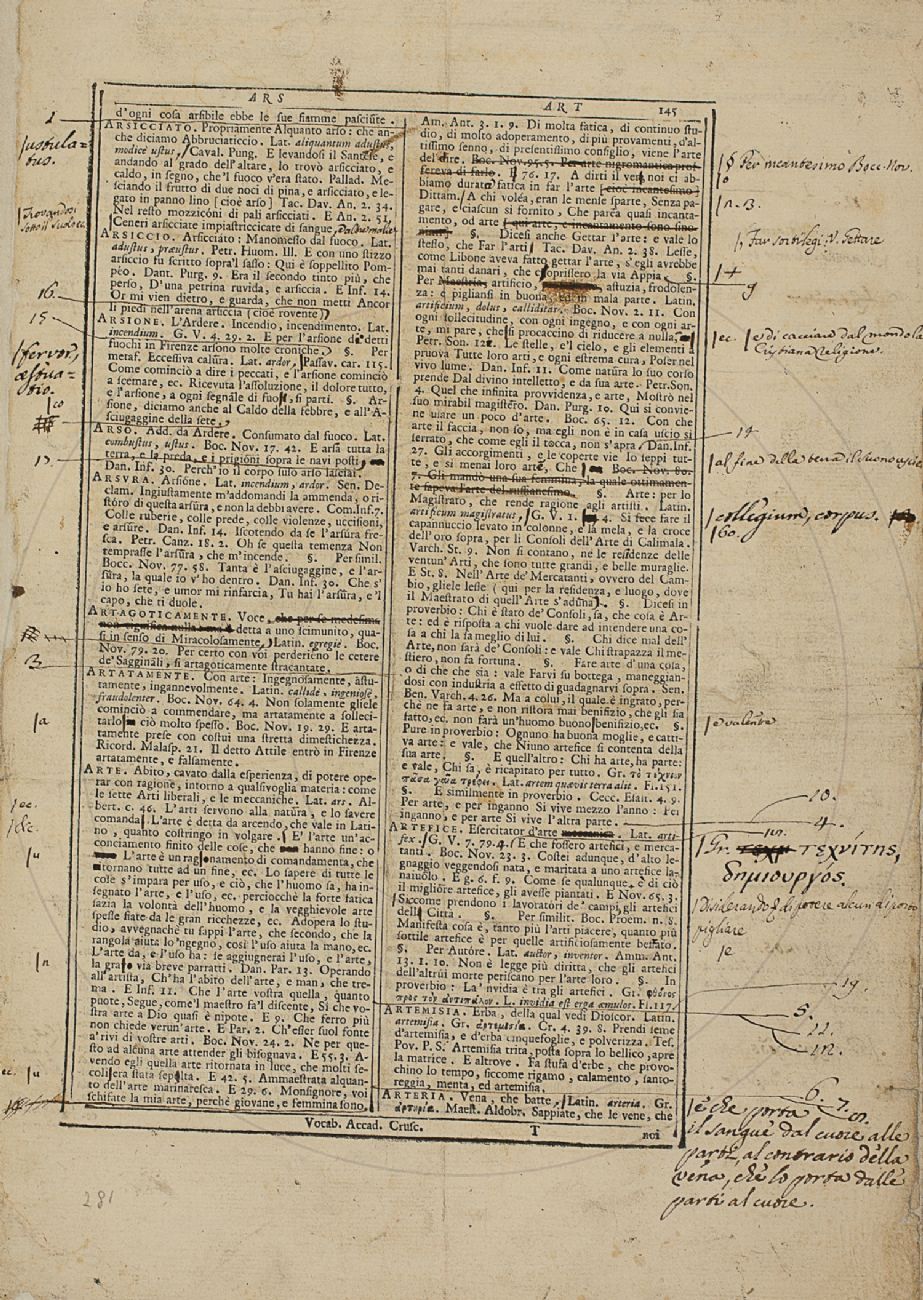 ARS
ART 145
d'ogni cosa arsibile ebbe le sue fiamme pasciute.
ARSICCIATO. Propriamente Alquanto arso: che an-
che diciamo Abbruciaticcio. Lat. aliquantum adustus,
modice ustus, Caval. Pung. E levandosi il Santese, e
andando al grado dell'altare, lo trovò arsicciato, e
caldo, in segno, che'l fuoco v'era stato. Pallad. Me-
sciando il frutto di due noci di pina, e arsicciato, e le-
gato in panno lino [cioè arso] Tac. Dav. An. 2. 34.
Nel resto mozziconi di pali arsicciati. E An. 2. 51,
Ceneri arsicciate impiastriccicate di sangue,
ARSICCIO. Arsicciato: Manomesso dal fuoco. Lat.
adustus, praeustus. Petr. Huom. Ill. E con uno stizzo
arsiccio fu scritto sopra'l sasso: Qui è soppellito Pom-
peo. Dant. Purg. 9. Era il secondo tinto più, che
perso, D'una petrina ruvida, e arsiccia. E Inf. 14.
Or mi vien dietro, e guarda, che non metti Ancor
li piedi nell'arena arsiccia (cioè rovente)
ARSIONE. L'Ardere. Incendio, incendimento. Lat.
incendium. G. V. 4. 29. 2. E per l'arsione di detti
fuochi in Firenze arsono molte croniche. §. Per
metaf. Eccessiva calura. Lat. ardor, Passav. car. 115.
Come cominciò a dire i peccati, e l'arsione cominciò
a scemare, ec. Ricevuta l'assoluzione, il dolore tutto,
e l'arsione, a ogni segnale di fuoco, si partì. §. Ar-
sione, diciamo anche al Caldo della febbre, e all'A-
sciugaggine della sete.
ARSO. Add. da Ardere. Consumato dal fuoco. Lat.
combustus, ustus. Boc. Nov. 17. 42. E arsa tutta la
terra, e la preda, e i prigioni sopra le navi posti,
Dan. Inf. 30. Perch'io il corpo suso arso lasciai.
ARSURA. Arsione. Lat. incendium, ardor. Sen. De-
clam. Ingiustamente m'addomandi la ammenda, o ri-
storo di questa arsura, e non la debbi avere. Com. Inf. 7.
Colle ruberie, colle prede, colle violenze, uccisioni,
e arsure. Dan. Inf. 14. Iscotendo da se l'arsura fre-
sca. Petr. Canz. 18. 2. Oh se questa temenza Non
temprasse l'arsura, che m'incende. §. Per simil.
Bocc. Nov. 77. 58. Tanta è l'asciugaggine, e l'ar-
sura, la quale io v'ho dentro. Dan. Inf. 30. Che s'
io ho sete, e umor mi rinfarcia, Tu hai l'arsura, e'l
capo, che ti duole.
ARTAGOTICAMENTE. Voce, che per se medesima
non significa nulla detta a uno scimunito, qua-
si in senso di Miracolosamente. Latin. egregiè. Boc.
Nov. 79. 20. Per certo con voi perderieno le cetere
de' Sagginali, sì artagoticamente stracantate.
ARTATAMENTE. Con arte: Ingegnosamente, astu-
tamente, ingannevolmente. Latin. callidè, ingeniosè,
fraudolenter. Boc. Nov. 64. 4. Non solamente gliele
cominciò a commendare, ma artatamente a solleci-
tarlo ciò molto spesso. Boc. Nov. 19. 29. E arta-
tamente prese con costui una stretta dimestichezza.
Ricord. Malasp. 21. Il detto Attile entrò in Firenze
artatamente, e falsamente.
ARTE. Abito, cavato dalla esperienza, di potere ope-
rar con ragione, intorno a qualsivoglia materia: come
le sette Arti liberali, e le meccaniche. Lat. ars. Al-
bert. c. 46. L'arti servono alla natura, e lo savere
comanda. L'arte è detta da arcendo, che vale in Lati-
no, quanto costringo in volgare. E l'arte un'ac-
conciamento finito delle cose, che hanno fine: o
L'arte è un ragunamento di comandamenta, che
tornano tutte ad un fine, ec. Lo sapere di tutte le
cose s'impara per uso, e ciò, che l'huomo sa, ha in-
segnato l'arte, e l'uso, ec. perciocchè la forte fatica
sazia la volontà dell'huomo, e la vegghievole arte
spesse fiate dà le gran ricchezze, ec. Adopera lo stu-
dio, avvegnachè tu sappi l'arte, che secondo, che la
rangola aiuta lo'ngegno, così l'uso aiuta la mano, ec.
L'arte da, e l'uso ha: se aggiugnerai l'uso, e l'arte,
la gran via breve parratti. Dan. Par. 13. Operando
all'artista, Ch'ha l'abito dell'arte, e man, che tre-
ma. E Inf. 11. Che l'arte vostra quella, quanto
puote, Segue, come'l maestro fa'l discente, Sì che vo-
stra arte a Dio quasi è nipote. E 9. Che ferro più
non chiede verun'arte. E Par. 2. Ch'esser suol fonte
a'rivi di vostre arti. Boc. Nov. 24. 2. Ne per que-
sto ad alcuna arte attender gli bisognava. E 55. 3. A-
vendo egli quella arte ritornata in luce, che molti se-
coli era stata sepolta. E 42. 5. Ammaestrata alquan-
to dell'arte marinaresca. E 29. 6. Monsignore, voi
schifate la mia arte, perchè giovane, e femmina sono.
Am. Ant. 3. 1. 9. Di molta fatica, di continuo stu-
dio, di molto adoperamento, di più provamenti, d'al-
tissimo senno, di presentissimo consiglio, viene l'arte
del dire. Boc. Nov. 95. 5. Per arte nigromantica prof-
fereva di farlo. E 76. 17. A dirti il vero noi ci ab-
biamo durata fatica in far l'arte [cioè incantesimo]
Dittam. A chi volèa, eran le mense sparte, Senza pa-
gare, e ciascun sì fornito, Che parèa quasi incanta-
mento, od arte
§. Dicesi anche Gettar l'arte: e vale lo
stesso, che Far l'arti. Tac. Dav. An. 2. 38. Lesse,
come Libone aveva fatto gettar l'arte, s'egli avrebbe
mai tanti danari, che coprissero la via Appia. §.
Per Maestria, artificio, astuzia, frodolen-
za: e pigliansi in buona, ed in mala parte. Latin.
artificium, dolus, calliditas. Boc. Nov. 2. 11. Con
ogni sollecitudine, con ogni ingegno, e con ogni ar-
te, mi pare, che si procaccino di riducere a nulla,
Petr. Son. 121. Le stelle, e'l cielo, e gli elementi a
pruova Tutte loro arti, e ogni estrema cura, Poser nel
vivo lume. Dan. Inf. 11. Come natura lo suo corso
prende Dal divino intelletto, e da sua arte. Petr. Son.
4. Quel che infinita provvidenza, e arte, Mostrò nel
suo mirabil magistero. Dan. Purg. 10. Qui si convie-
ne usare un poco d'arte. Boc. 65. 12. Con che
arte il faccia, non so, ma egli non è in casa uscio sì
serrato, che come egli il tocca, non s'apra, Dan. Inf.
27. Gli accorgimenti, e le coperte vie Io seppi tut-
te, e sì menai loro arte, Che Boc. Nov. 80.
7. Gli mandò una sua femmina, la quale ottimamen-
te sapeva l'arte del ruffianesimo. §. Arte: per lo
Magistrato, che rende ragione agli artisti. Latin.
artificum magistratus. G. V. 1. 4. Si fece fare il
capannuccio levato in colonne, e la mela, e la croce
dell'oro sopra, per li Consoli dell'Arte di Calimala.
Varch. St. 9. Non si contano, nè le residenze delle
ventun'Arti, che sono tutte grandi, e belle muraglie.
E St. 8. Nell'Arte de'Mercatanti, ovvero del Cam-
bio, gliele lesse (qui per la residenza, e luogo, dove
il Maestrato di quell'Arte s'aduna). §. Dicesi in
proverbio: Chi è stato de' Consoli, sa, che cosa è Ar-
te: ed è risposta a chi vuole dare ad intendere una co-
sa a chi la sa meglio di lui. §. Chi dice mal dell'
Arte, non sarà de' Consoli: e vale Chi strapazza il me-
stiero, non fa fortuna. §. Fare arte d'una cosa,
o di che che sia: vale Farvi su bottega, maneggian-
dosi con industria a effetto di guadagnarvi sopra. Sen.
Ben. Varch. 4. 26. Ma a colui, il quale è ingrato, per-
chè ne fa arte, e non ristora mai benifizio, che gli sia
fatto, ec. non farà un'huomo buono benifizio, ec. §.
Pure in proverbio: Ognuno ha buona moglie, e catti-
va arte: e vale, che Niuno artefice si contenta della
sua arte. §. E quell'altro: Chi ha arte, ha parte:
e vale, Chi sa, è ricapitato per tutto. Gr. τὸ τέχνιον
πᾶσα γαῖα τρέφει. Lat. artem quaevis terra alit. Fl. 151.
§. E similmente in proverbio. Cecc. Esalt. 4. 9.
Per arte, e per inganno Si vive mezzo l'anno: Per
inganno, e per arte Si vive l'altra parte.
ARTEFICE. Esercitator d'arte meccanica. Lat. arti-
fex. G. V. 7. 79. 4. E che fossero artefici, e merca-
tanti. Boc. Nov. 23. 3. Costei adunque, d'alto le-
gnaggio veggendosi nata, e maritata a uno artefice la-
naiuolo. E g. 6. f. 9. Come se qualunque, e di ciò
il migliore artefice, gli avesse piantati. E Nov. 65. 3.
Siccome prendono i lavoratori de' campi, gli artefici
della Città. §. Per similit. Boc. Proem. n. 8.
Manifesta cosa è, tanto più l'arti piacere, quanto più
sottile artefice è per quelle artificiosamente beffato.
§. Per Autore. Lat. auctor, inventor. Amm. Ant.
13. 1. 10. Non è legge più diritta, che gli artefici
dell'altrui morte periscano per l'arte loro. §. In
proverbio: La 'nvidia è tra gli artefici. Gr. φθόνος
πρὸς τὸν ἀντίτεχνον. L. invidia est erga aemulor. Fl. 117.
ARTEMISIA. Erba, della qual vedi Dioscor. Latin.
artemisia. Gr. ἀρτεμισία. Cr. 4. 39. 8. Prendi seme
d'artemisia, e d'erba cinquefoglie, e polverizza. Tes.
Pov. P. S. Artemisia trita, posta sopra lo bellico, apre
la matrice. E altrove. Fa stufa d'erbe, che provo-
chino lo tempo, siccome rigamo, calamento, santo-
reggia, menta, ed artemisia.
ARTERIA. Vena, che batte, Latin. arteria. Gr.
ἀρτηρία. Maest. Aldobr. Sappiate, che le vene, che
Vocab. Accad. Crusc. T noi
ustula-
tus.
16.
15
fervor,
aestua-
tio.
co
13.
3.
a
ec.
u
n
ec. u
281
§ Per incantesimo Bocc. Nov.
n. 3.
Far sortilegi, V. Gettare
14
9
ec. e di cacciare dal mondo la
Cristiana Religione.
14
al fine della
collegium, corpus.
60.
e valente
10.
4.
un.
Gr. τεχνίτης,
δημιουργός.
Disiderando di potere alcun diporto
pigliare
e
19.
5.
11.
12.
6. 7.
è che porta
il sangue dal cuore alle
parti, al contrario della
vena, che lo porta dalle
parti al cuore.